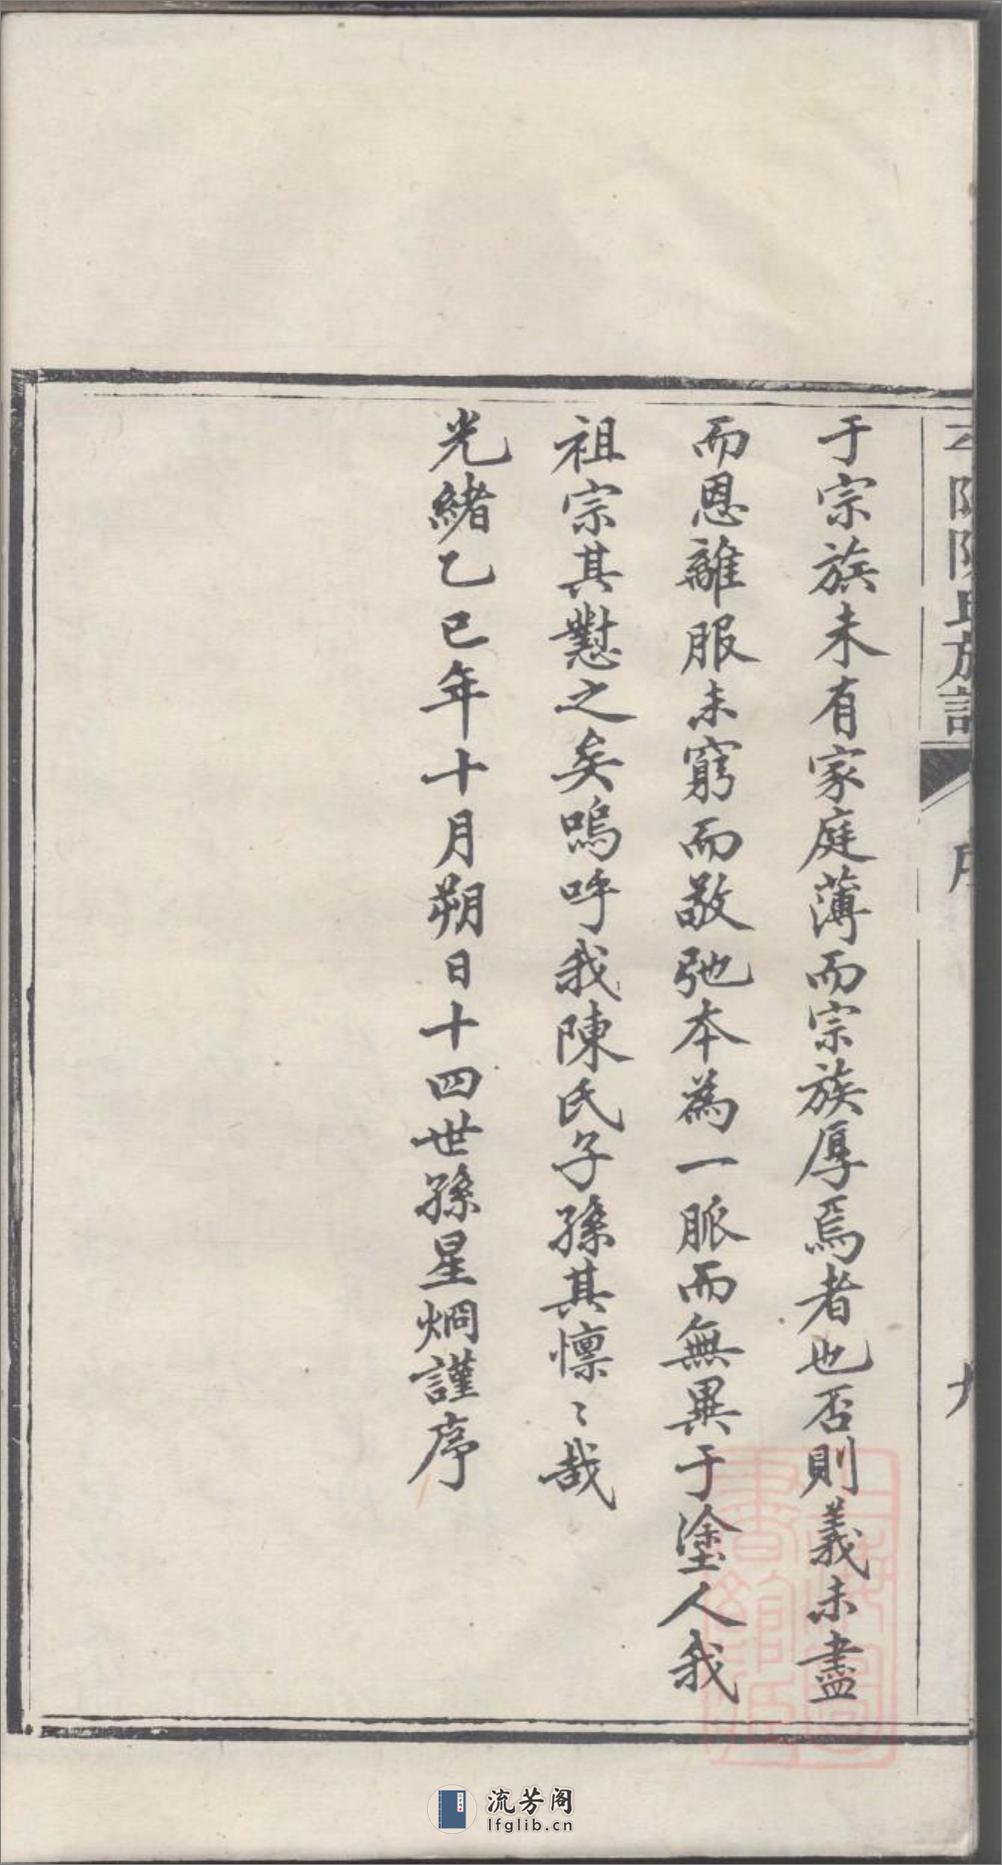 于宗族未有家庭薄而宗族厚焉者也否則義未盡
而恩離服未窮而敬弛本為一脈而無異于塗人我
祖宗其懟之矣嗚呼我陳氏子孫其懍〻哉
光緒乙巳年十月朔日十四世孫星烱謹序
陳氏族譜
序
流芳阁
lfglib.cn